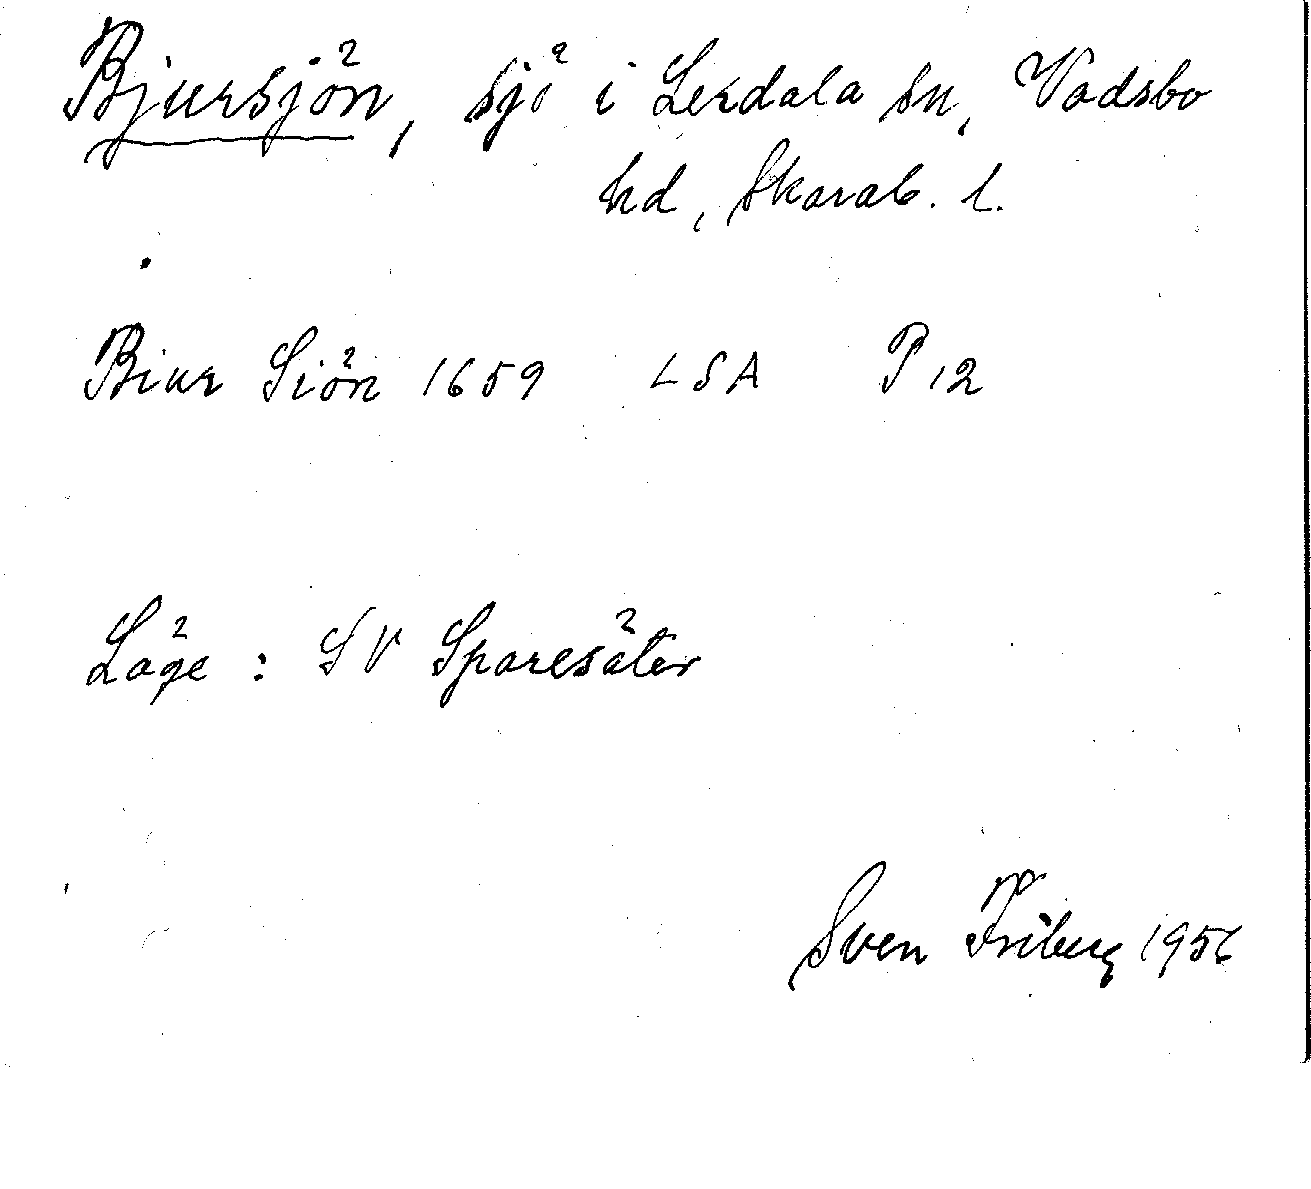 Bjursjön, sjö i Lerdala sn, Vadsbo
hd, Skarab. l.
Biur Siön 1659 LSA P 12
Läge : SV Sparesäter
Sven Friberg 1956